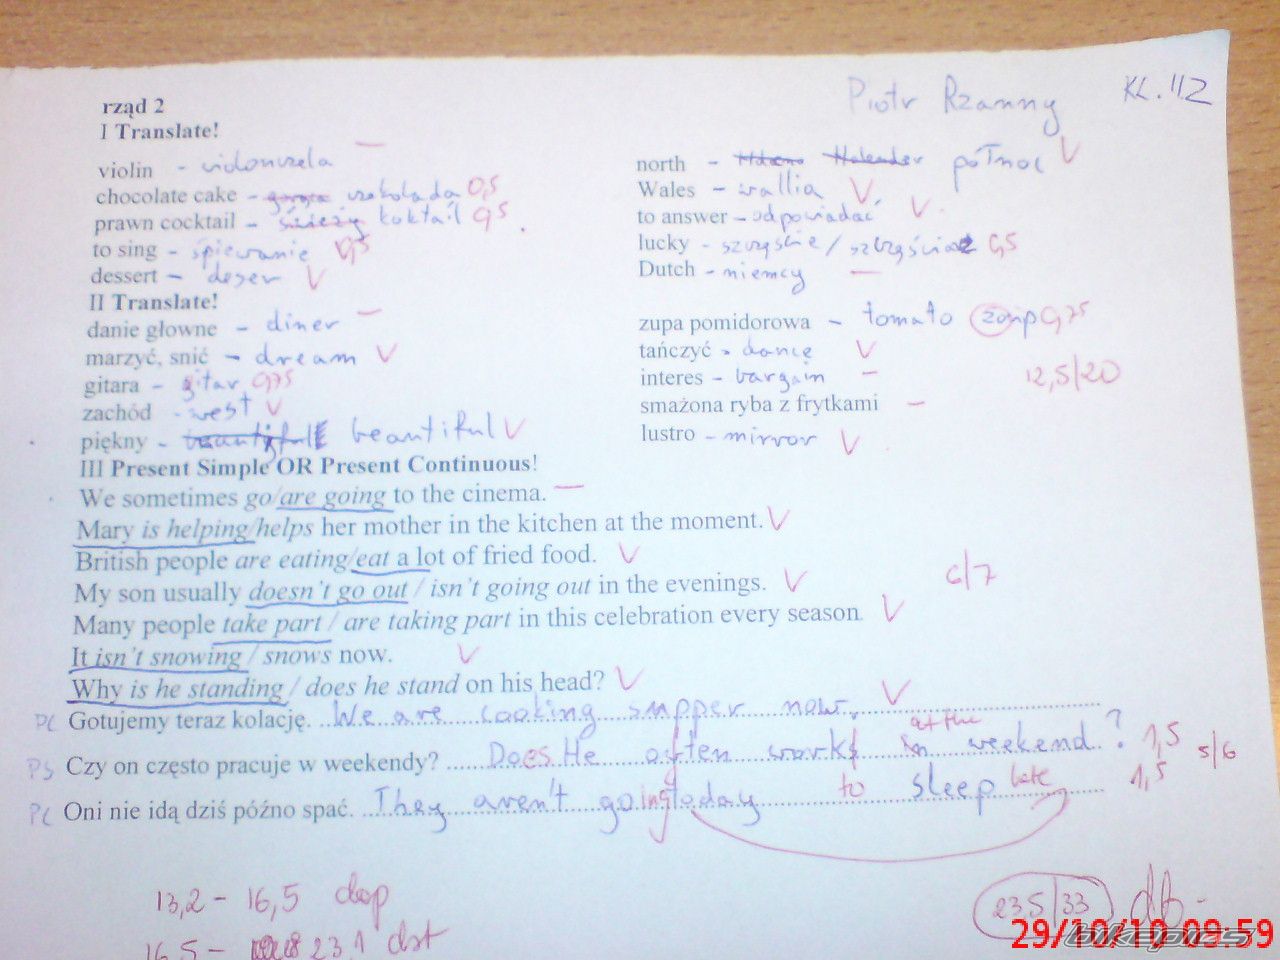 Piotr Rzanny KL. 112
rząd 2
I Translate!
violin - violonczela —
chocolate cake - czekolada 0,5
prawn cocktail - świeży koktail 0,5
to sing - śpiewanie 0,5
dessert - deser V
north - północ V
Wales - wallia V
to answer - odpowiadać V
lucky - szczęście / szczęściaż 0,5
Dutch - niemcy —
II Translate!
danie głowne - diner —
marzyć, snić - dream V
gitara - gitar 0,75
zachód - west V
piękny - beautiful beautiful V
zupa pomidorowa - tomato zoup 0,75
tańczyć - dance V
interes - bargain —
smażona ryba z frytkami —
lustro - mirror V
12,5/20
III Present Simple OR Present Continuous!
We sometimes go/are going to the cinema. —
Mary is helping/helps her mother in the kitchen at the moment. V
British people are eating/eat a lot of fried food. V
My son usually doesn't go out / isn't going out in the evenings. V
6/7
Many people take part / are taking part in this celebration every season. V
It isn't snowing / snows now. V
Why is he standing / does he stand on his head? V
PC Gotujemy teraz kolację. We are cooking supper now. V
PS Czy on często pracuje w weekendy? Does He often works in at the weekend? 1,5
5/6
PC Oni nie idą dziś późno spać. They aren't going today to sleep late 1,5
13,2 - 16,5 dop
16,5 - 23,1 dst
23,5/33 db-
29/10/10 09:59
bikepics